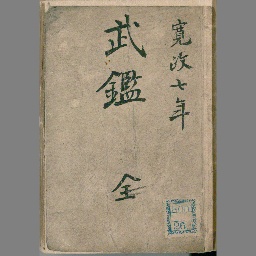 寛政七年
武鑑 全